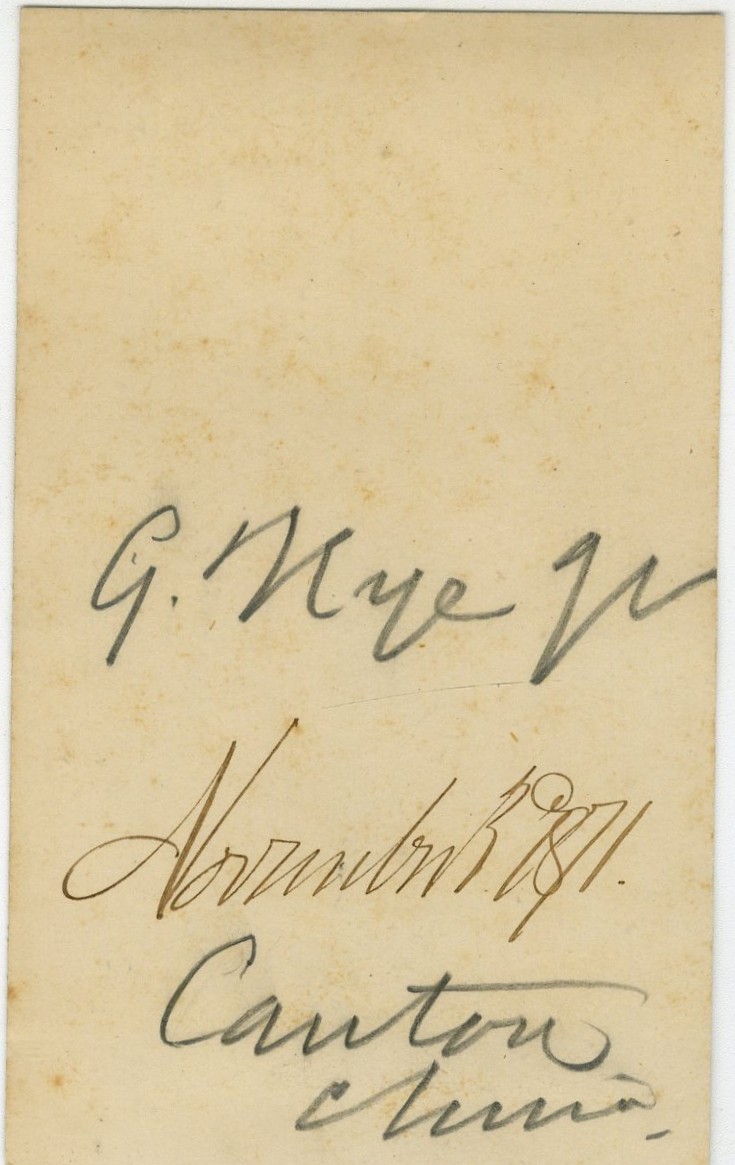 G. Nye Jr
November 1871.
Canton
China.